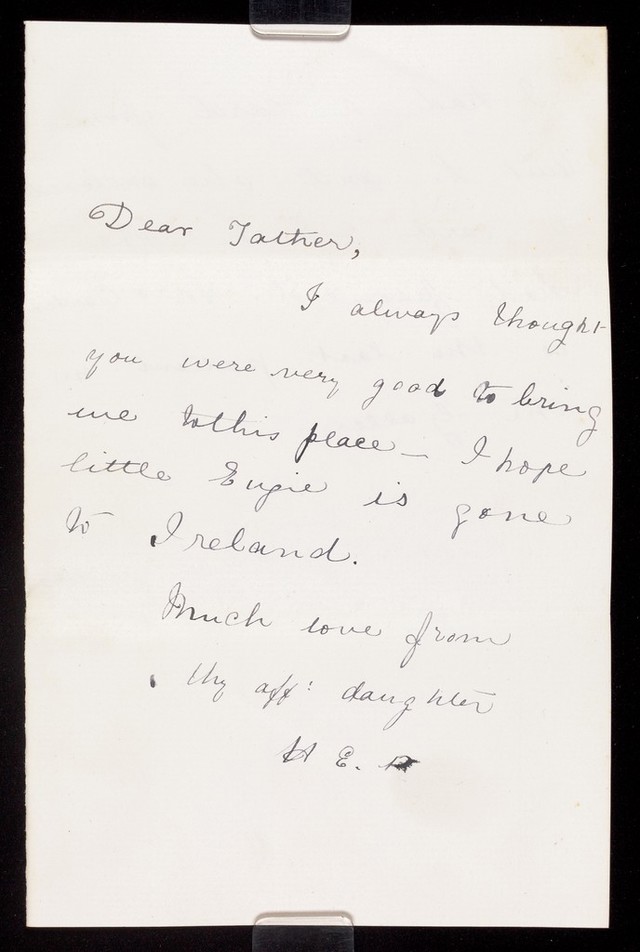 Dear Father,
I always thought
you were very good to bring
me to this place — I hope
little Eugie is gone
to Ireland.
Much love from
thy aff: daughter
H E. P